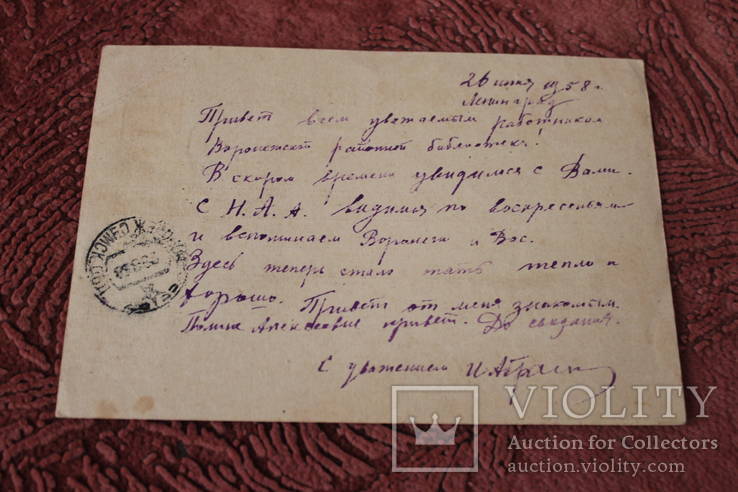 26 июня 1958 г.
Ленинград
Привет всем уважаемым работникам
Воронежской районной библиотеки!
В скором времени увидимся с Вами.
С Н. А. А. видимся по воскресеньям
и вспоминаем Воронеж и Вас.
Здесь теперь стало тепло и
хорошо. Привет от меня знакомым.
Полине Алексеевне привет. До свидания.
С уважением И
VIOLITY
Auction for Collectors
auction.violity.com